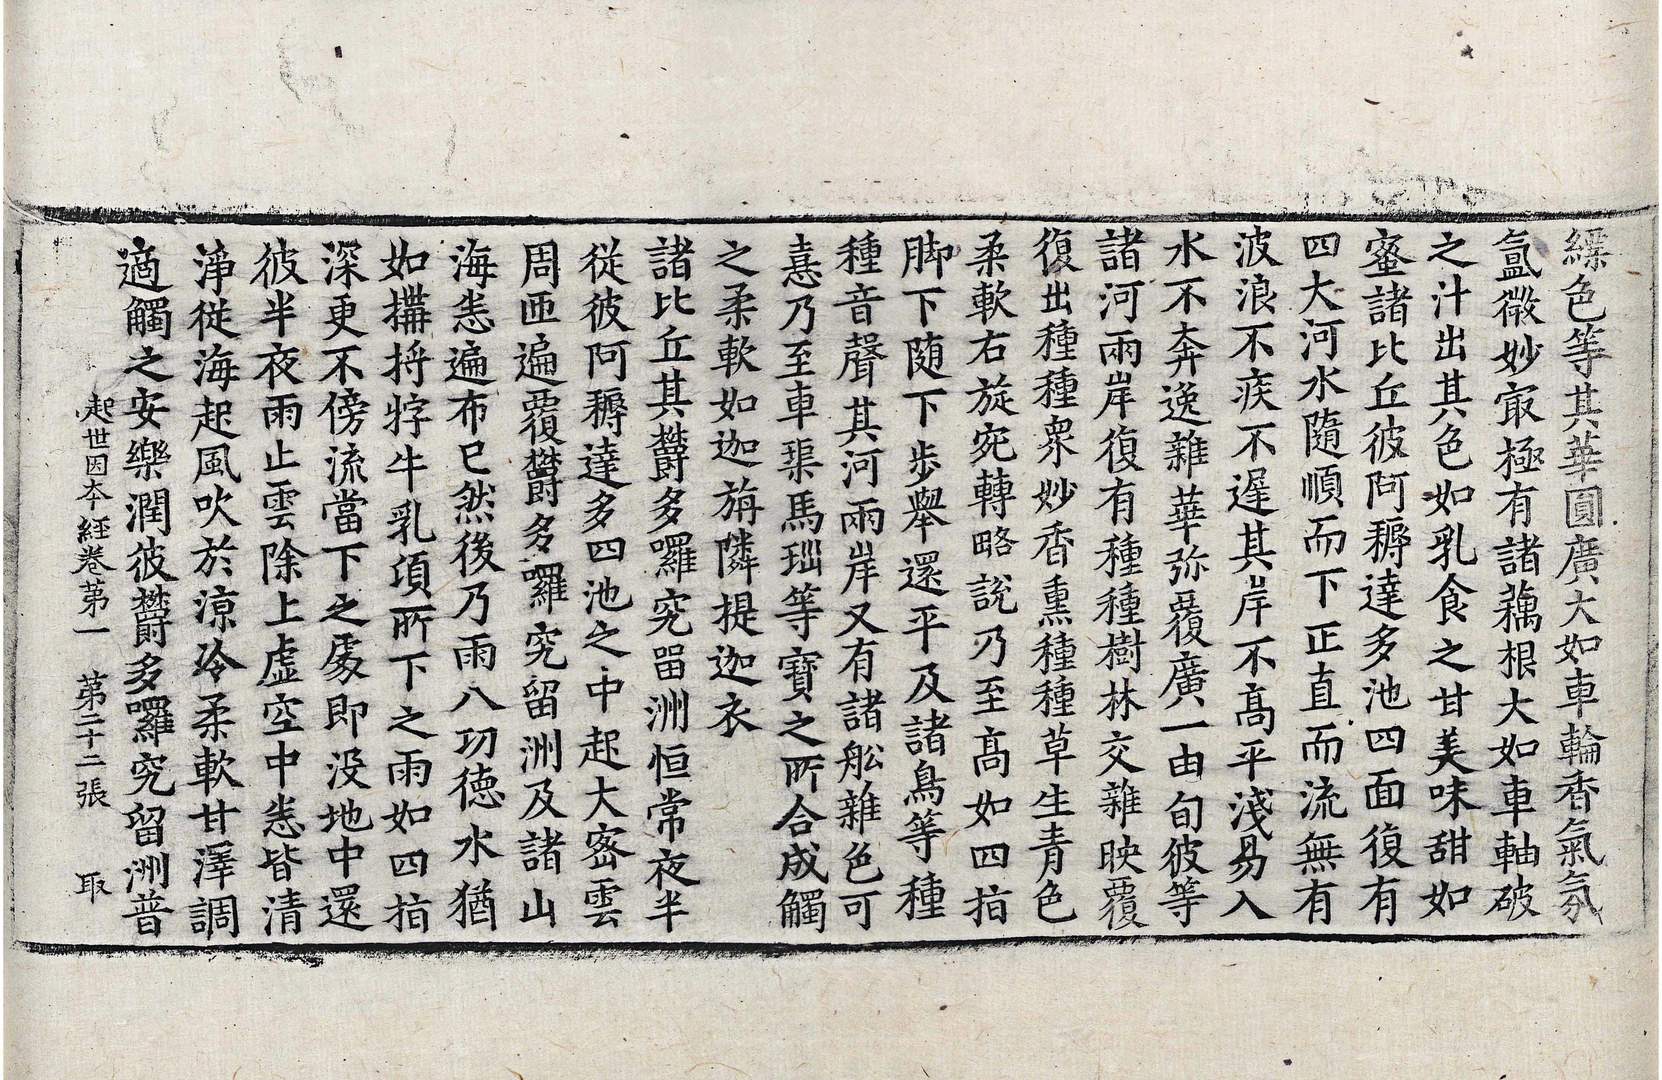 縹色等其華圓廣大如車輪香氣氛
氳微妙㝡極有諸藕根大如車軸破
之汁出其色如乳食之甘美味甜如
蜜諸比丘彼阿耨達多池四面復有
四大河水隨順而下正直而流無有
波浪不疾不遲其岸不髙平淺易入
水不奔逸雜華弥覆廣一由旬彼等
諸河兩岸復有種種樹林交雜映覆
復出種種衆妙香熏種種草生青色
柔軟右旋宛轉略說乃至髙如四指
脚下随下步舉還平及諸鳥等種
種音聲其河兩岸又有諸舩雜色可
憙乃至車𤦲馬瑙等寶之所合成觸
之柔軟如迦旃隣提迦衣
諸比丘其欝多囉究畱洲恒常夜半
從彼阿耨達多四池之中起大密雲
周匝遍覆欝多囉究留洲及諸山
海悉遍布已然後乃雨八功德水猶
如𤛓捋牸牛乳頃所下之雨如四指
深更不傍流當下之處即没地中還
彼半夜雨止雲除上虚空中悉皆清
淨從海起風吹於涼冷柔軟甘澤調
適觸之安樂潤彼欝多囉究留洲普
起世因本經卷第一　第二十二張　取